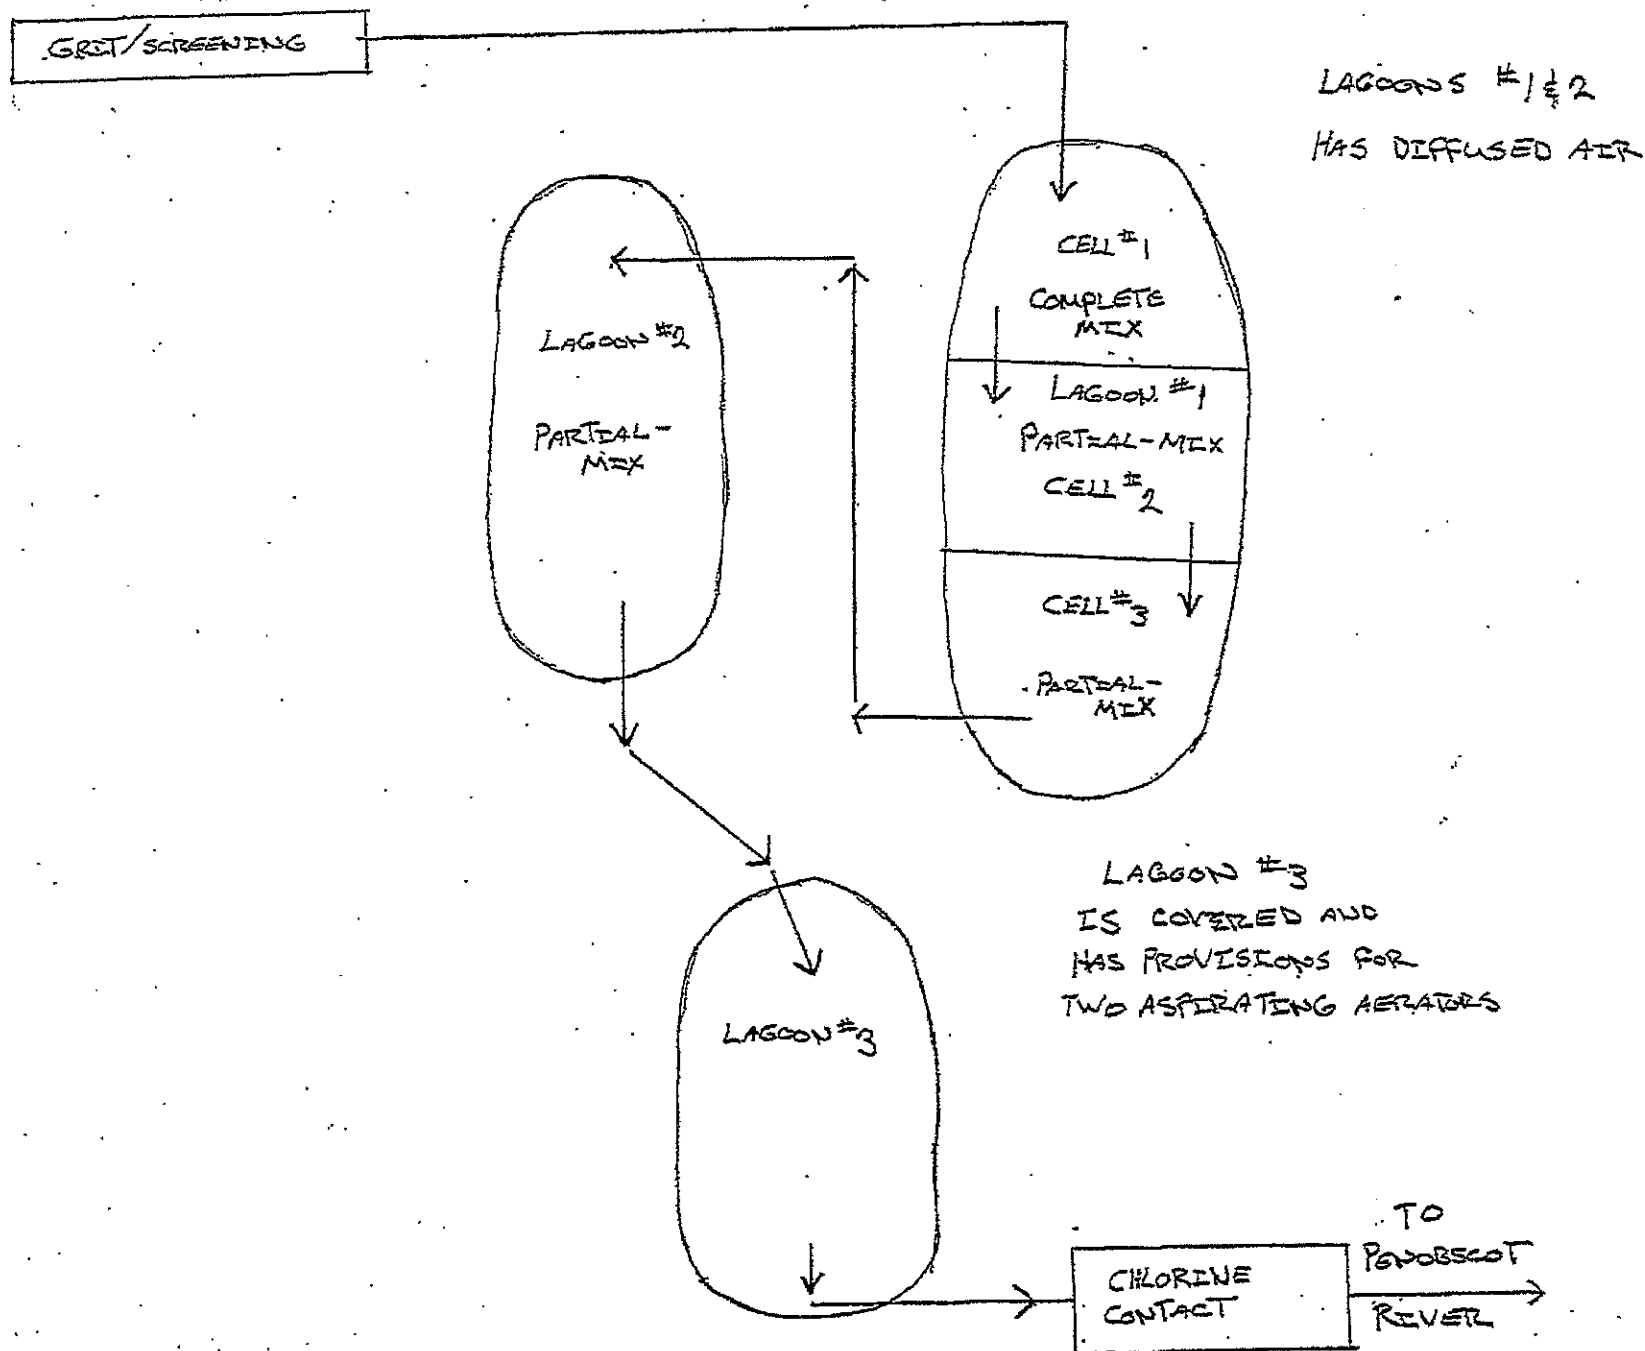 GRIT/SCREENING
LAGOONS #1 & 2
HAS DIFFUSED AIR
CELL #1
COMPLETE
MIX
LAGOON #1
PARTIAL-MIX
CELL #2
CELL #3
PARTIAL-
MIX
LAGOON #2
PARTIAL-
MIX
LAGOON #3
IS COVERED AND
HAS PROVISIONS FOR
TWO ASPIRATING AERATORS
LAGOON #3
CHLORINE
CONTACT
TO
PENOBSCOT
RIVER